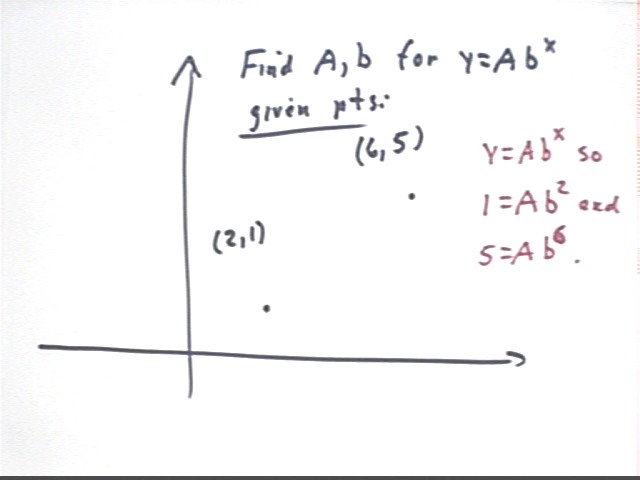 Find A, b for y=Ab^x
given pts:
(6,5)
(2,1)
y=Ab^x so
1=Ab^2 and
5=Ab^6.